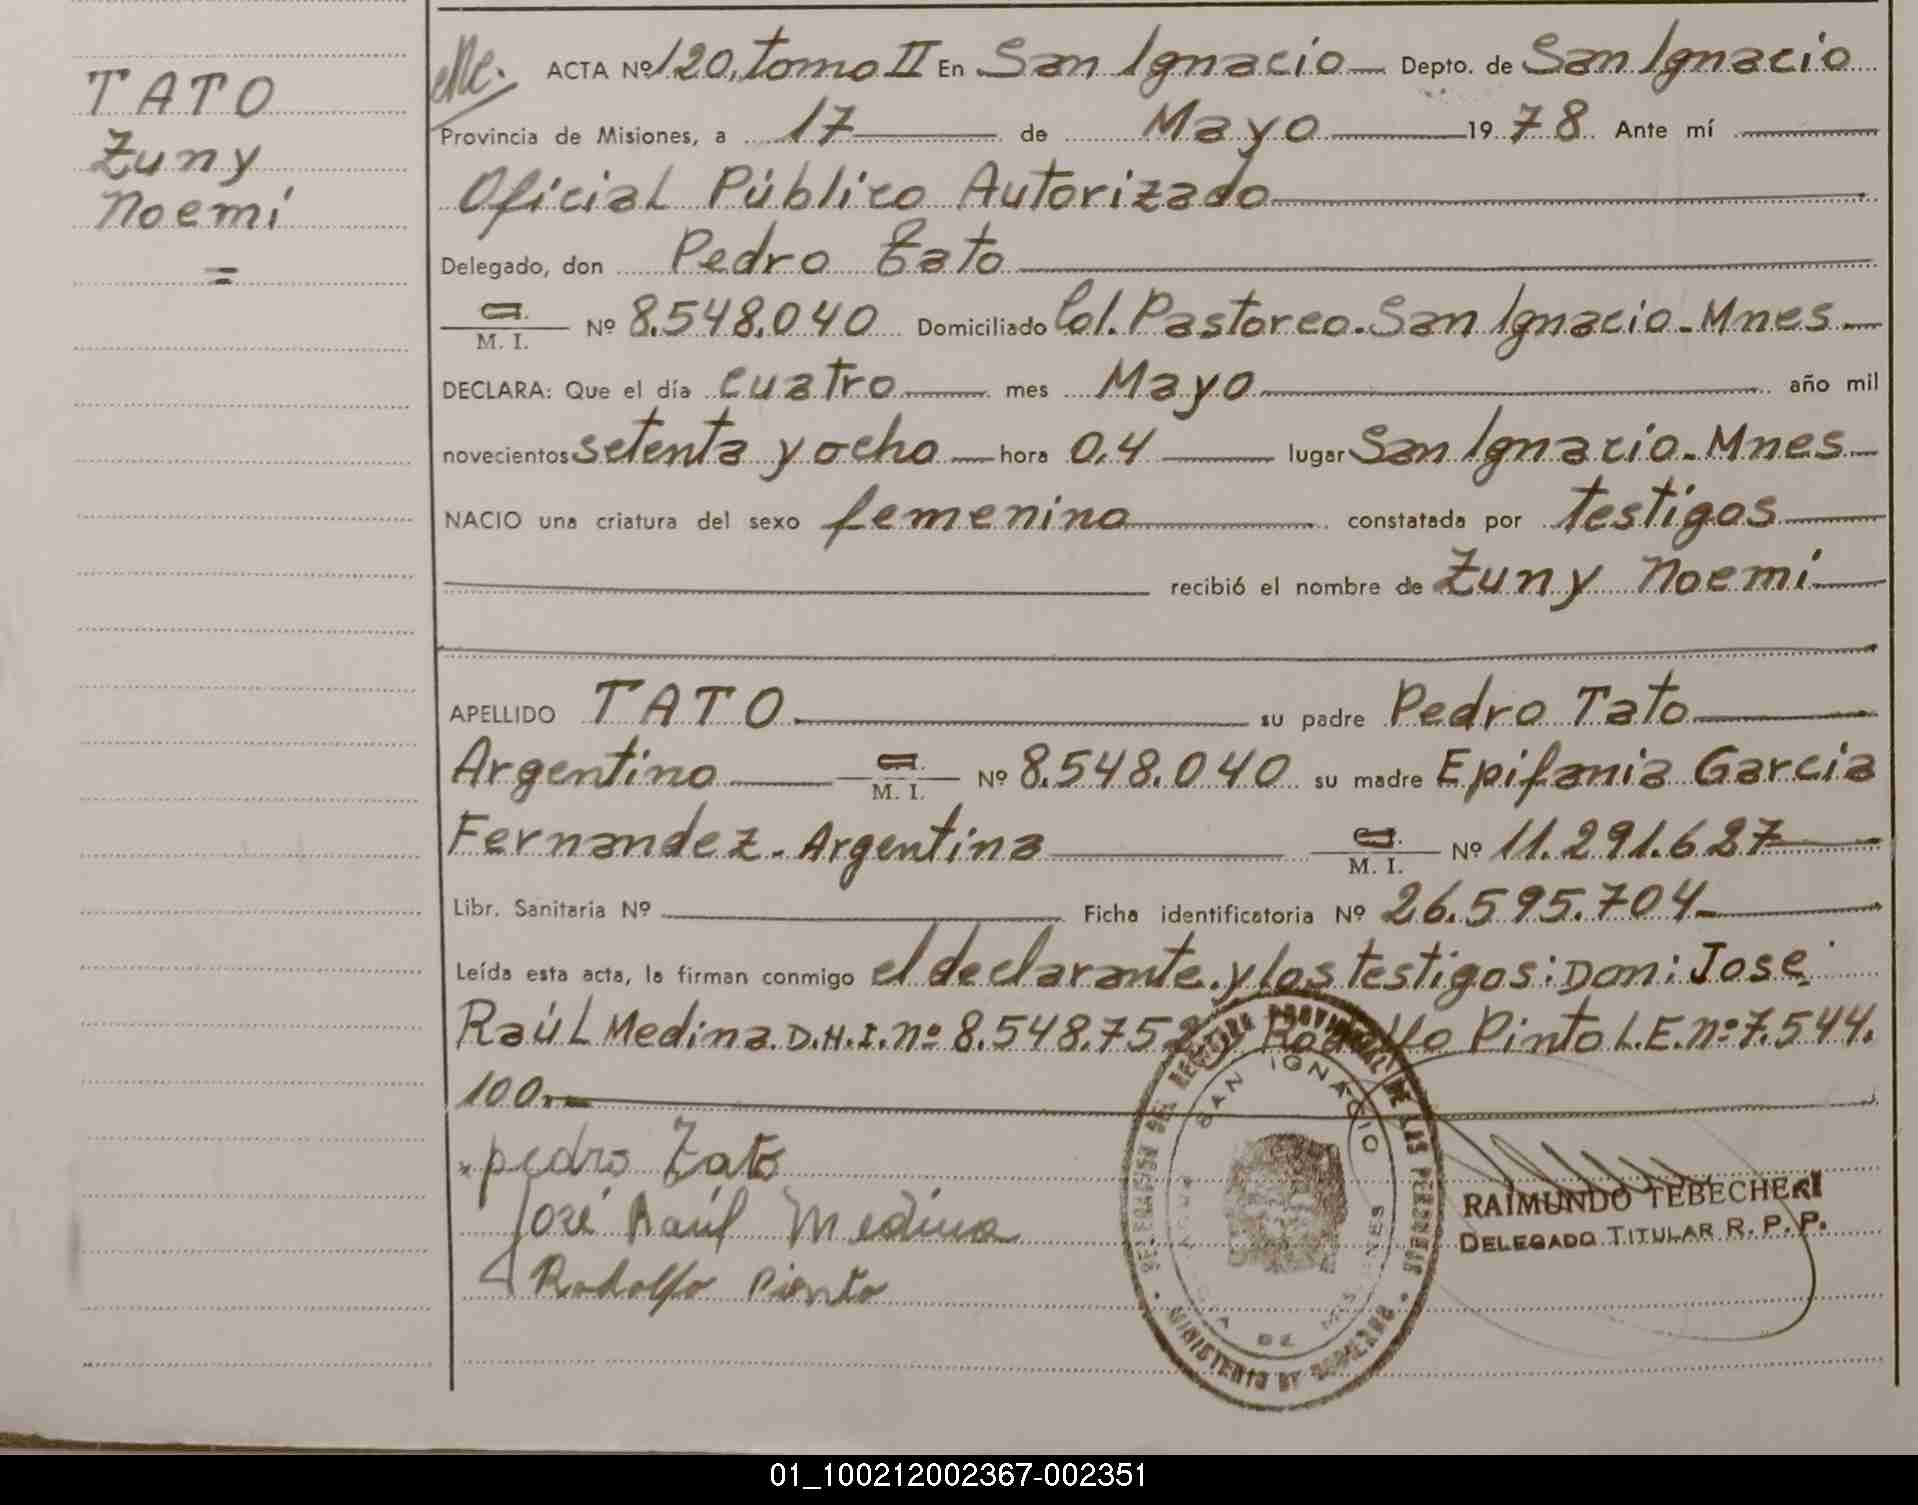 TATO
Zuny
Noemí
=
ACTA Nº 120, tomo II En San Ignacio Depto. de San Ignacio
Provincia de Misiones, a 17 de Mayo 19 78 Ante mí
Oficial Público Autorizado
Delegado, don Pedro Tato
M. I. Nº 8.548.040 Domiciliado Col. Pastoreo. San Ignacio - Mnes
DECLARA: Que el día cuatro mes Mayo año mil
novecientos setenta y ocho hora 0.4 lugar San Ignacio - Mnes
NACIO una criatura del sexo femenino constatada por testigos
recibió el nombre de Zuny Noemí
APELLIDO TATO su padre Pedro Tato
Argentino M. I. Nº 8.548.040 su madre Epifania Garcia
Fernandez - Argentina M. I. Nº 11.291.627
Libr. Sanitaria Nº Ficha identificatoria Nº 26.595.704
Leída esta acta, la firman conmigo el declarante y los testigos: Don: José
Raúl Medina D.N.I. nº 8.548.752 y Rodolfo Pinto L.E. nº 7.544.
100.-
pedro Tato
José Raúl Medina
Rodolfo Pinto
DELEGACION DEL REGISTRO PROVINCIAL DE LAS PERSONAS
SAN IGNACIO
DE MISIONES
MINISTERIO DE GOBIERNO
RAIMUNDO TEBECHERI
DELEGADO TITULAR R. P. P.
01_100212002367-002351